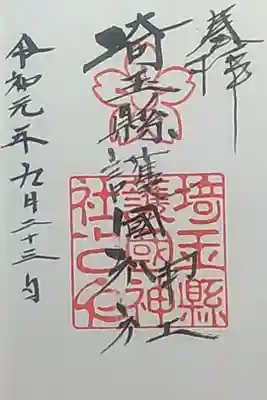 奉拝
埼玉縣護國神社
埼玉縣
護國神
社之印
令和元年九月二十三日